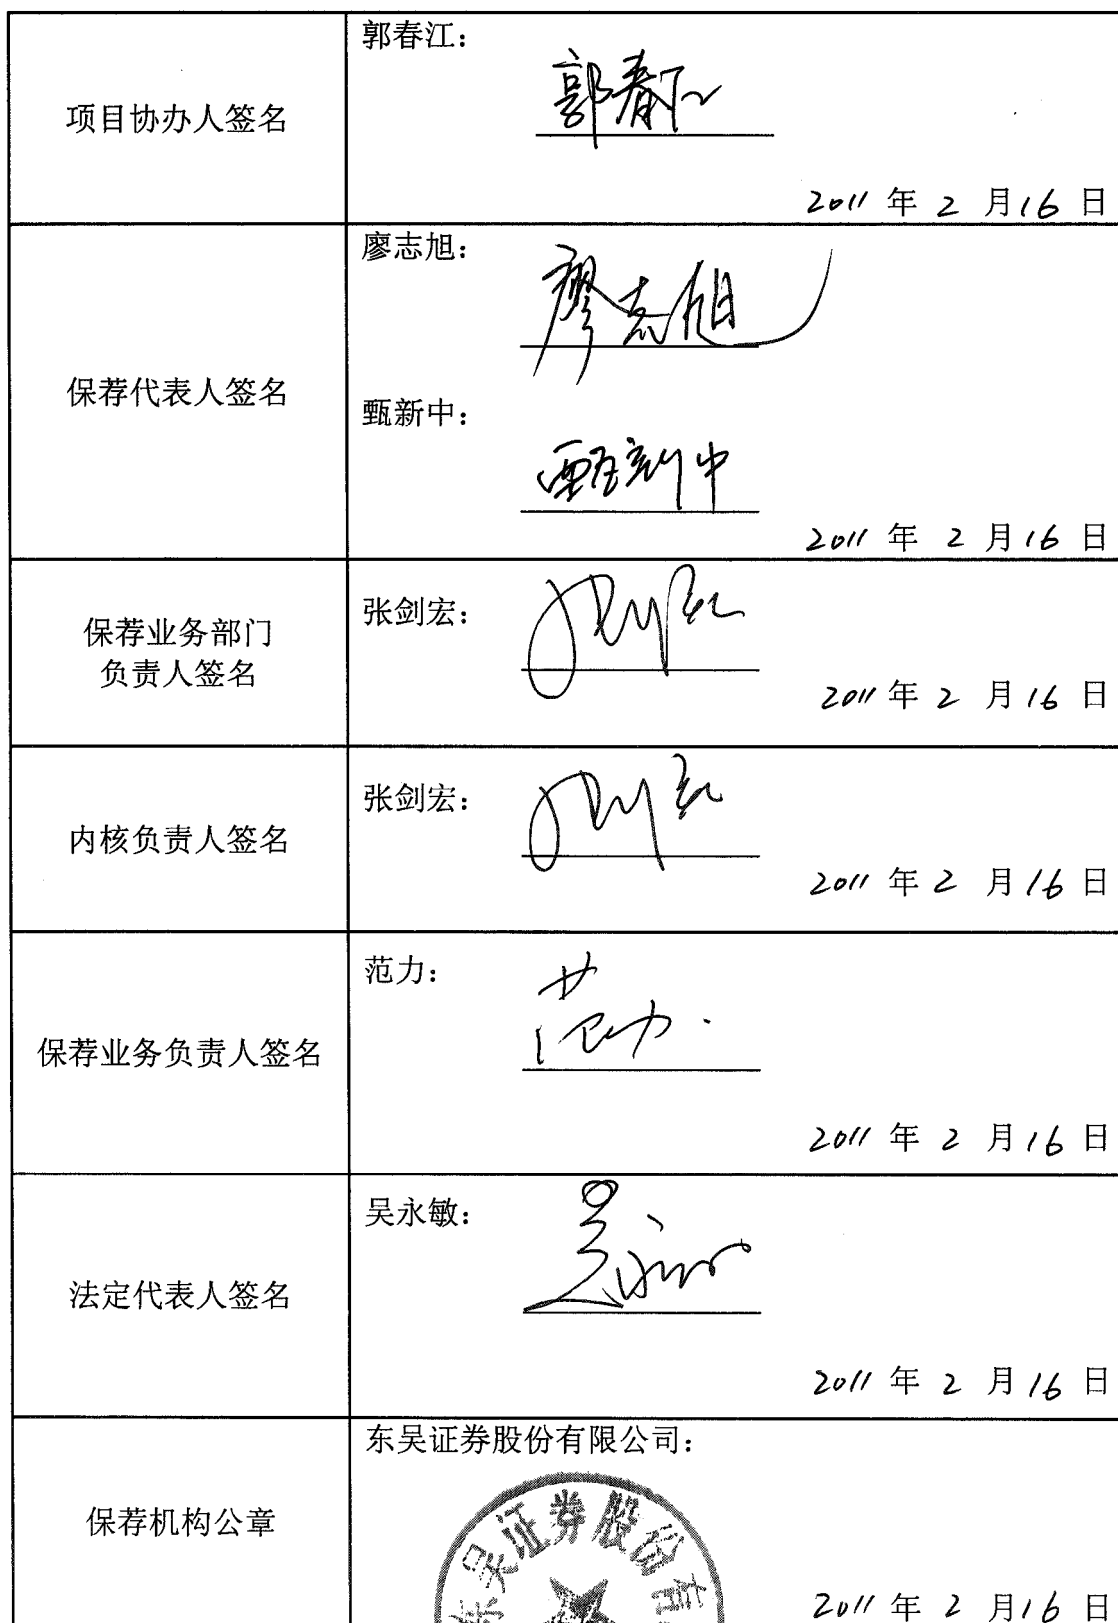 郭春江：
项目协办人签名
郭春江
2011 年 2 月 16 日
廖志旭：
廖志旭
保荐代表人签名
甄新中：
甄新中
2011 年 2 月 16 日
保荐业务部门
负责人签名
张剑宏：
张剑宏
2011 年 2 月 16 日
内核负责人签名
张剑宏：
张剑宏
2011 年 2 月 16 日
保荐业务负责人签名
范力：
范力
2011 年 2 月 16 日
法定代表人签名
吴永敏：
吴永敏
2011 年 2 月 16 日
保荐机构公章
东吴证券股份有限公司：
东吴证券股份有
2011 年 2 月 16 日